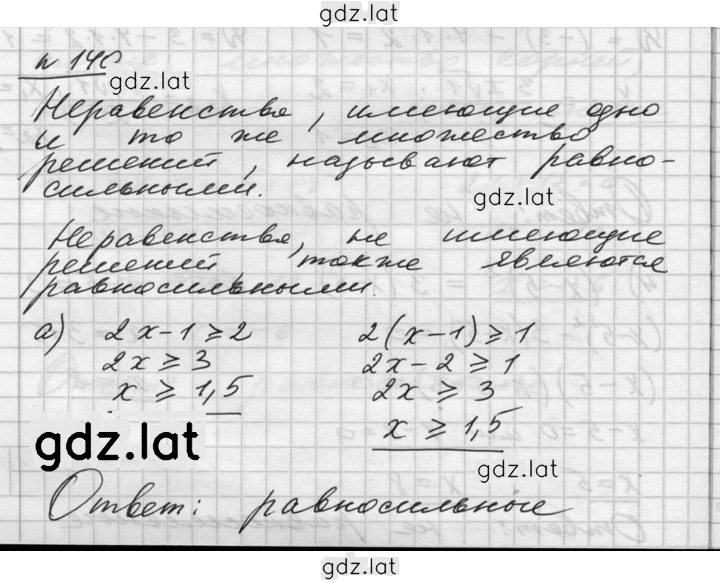 gdz.lat
n 140
gdz.lat
Неравенства, имеющие одно
и то же множество
решений, называют равно-
сильными.
gdz.lat
Неравенства, не имеющие
решений также являются
равносильными.
а) 2x-1⩾2 2(x-1)⩾1
2x⩾3 2x-2⩾1
x⩾1,5 2x⩾3
gdz.lat x⩾1,5
gdz.lat
Ответ: равносильные
gdz.lat